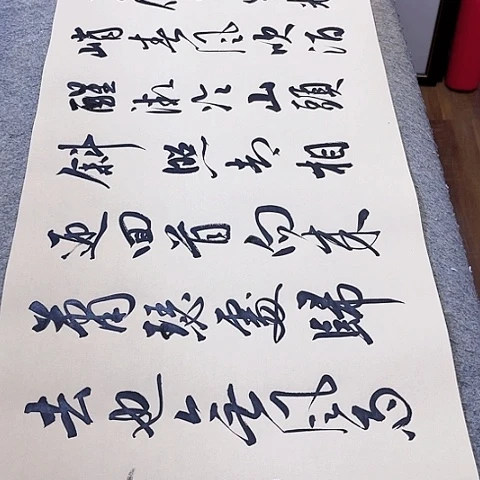 峭春風吹酒
醒微冷山頭
斜照却相
迎回首向來
蕭瑟處歸
去也無風雨